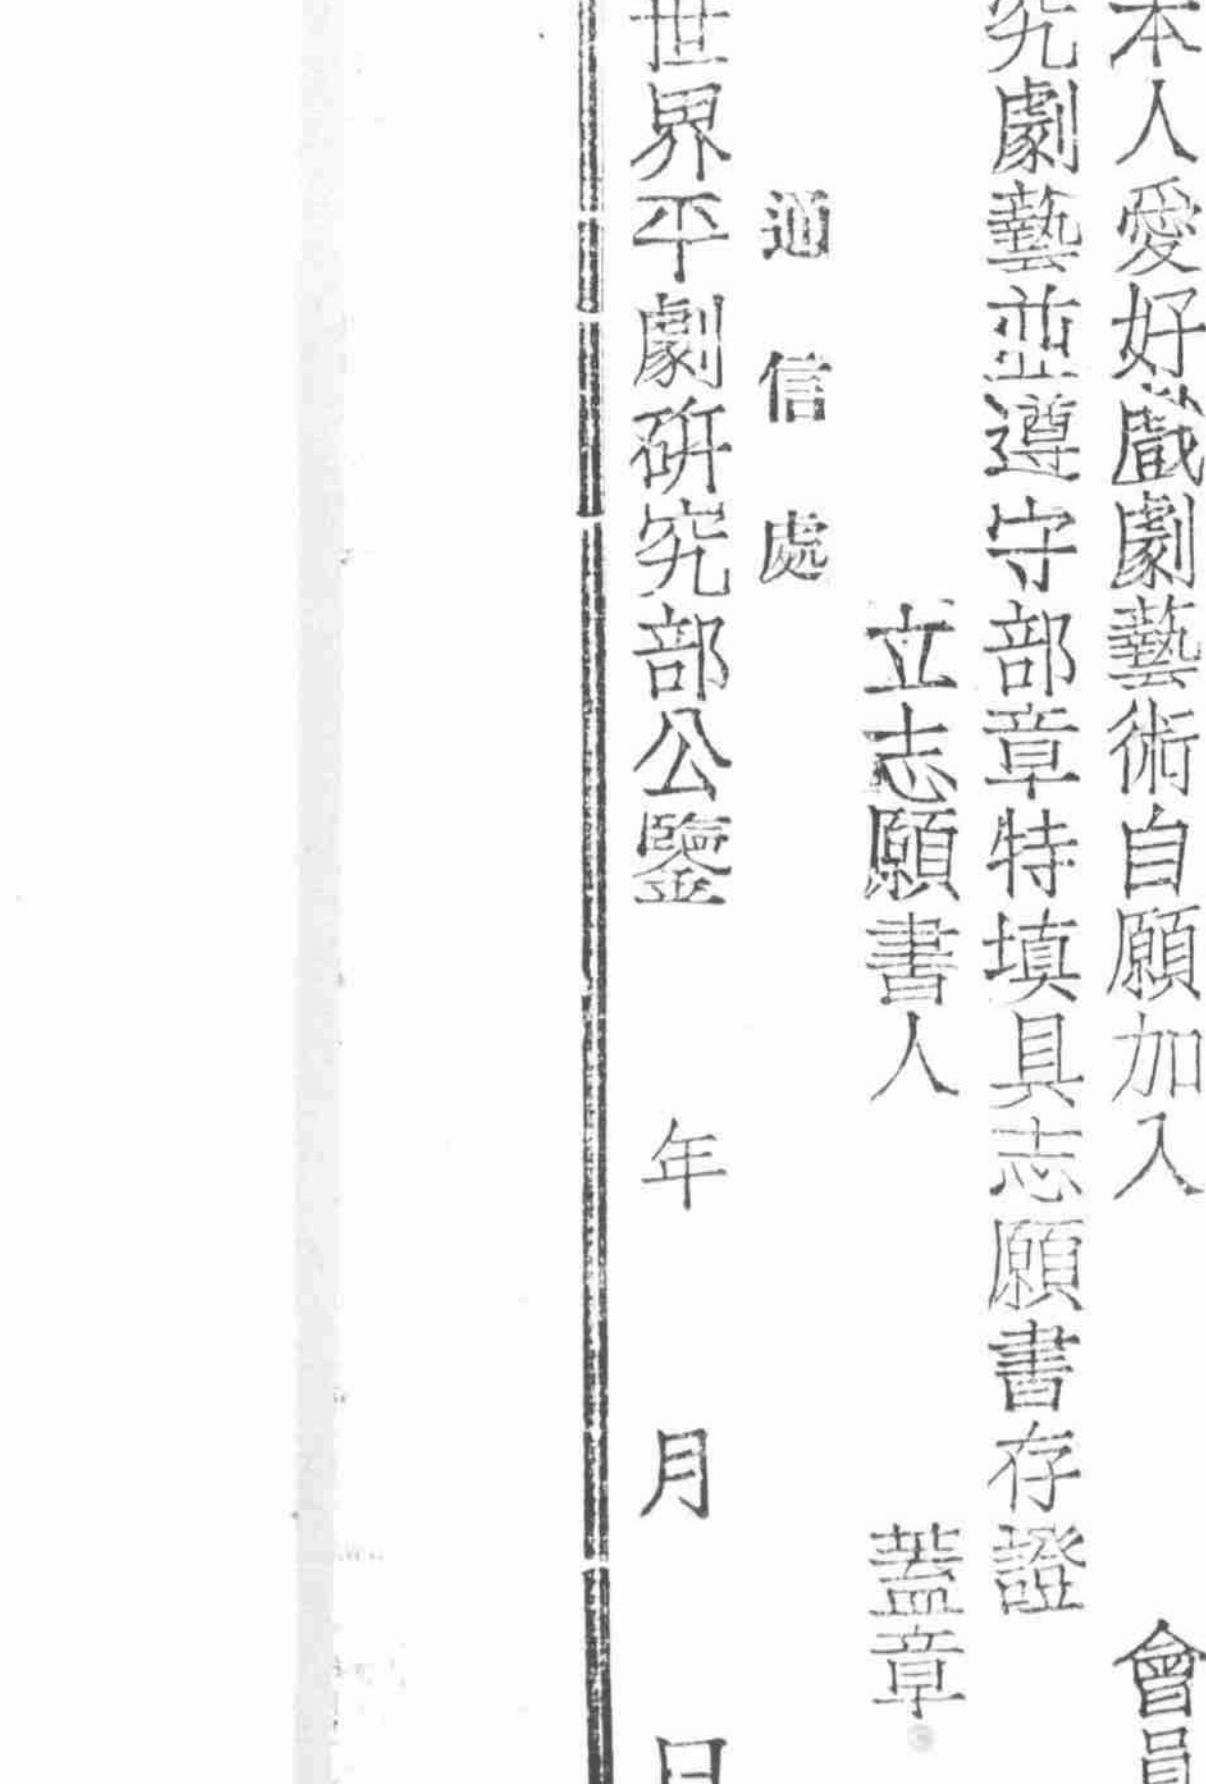 本人愛好戲劇藝術自願加入 會員
究劇藝並遵守部章特填具志願書存證
立志願書人 蓋章
通信處
世界平劇研究部公鑒 年 月 日